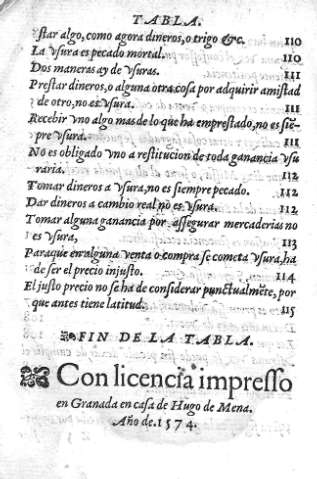 TABLA.
ʃtar algo, como agora dineros, o trigo &c. 110
La vſura es pecado mortal. 110
Dos maneras ay de vſuras. 111
Preſtar dineros, o alguna otra coſa por adquirir amiſtad
de otro, no es vſura. 111
Recebir vno algo mas de lo que ha empreſtado, no es ſiē-
pre vſura. 111
No es obligado vno a reſtitucion de toda ganancia vſu
raria. 112
Tomar dineros a vſura, no es ſiempre pecado. 112
Dar dineros a cambio real no es vſura. 112
Tomar alguna ganancia por aſſegurar mercaderias no
es vſura, 113
Para que en alguna venta o compra ſe cometa vſura, ha
de ſer el precio injuſto. 114
El juſto precio no ſe ha de conſiderar punctualmēte, por
que antes tiene latitud. 115
FIN DE LA TABLA.
Con licencia impreſſo
en Granada en caſa de Hugo de Mena.
Año de. 1574.